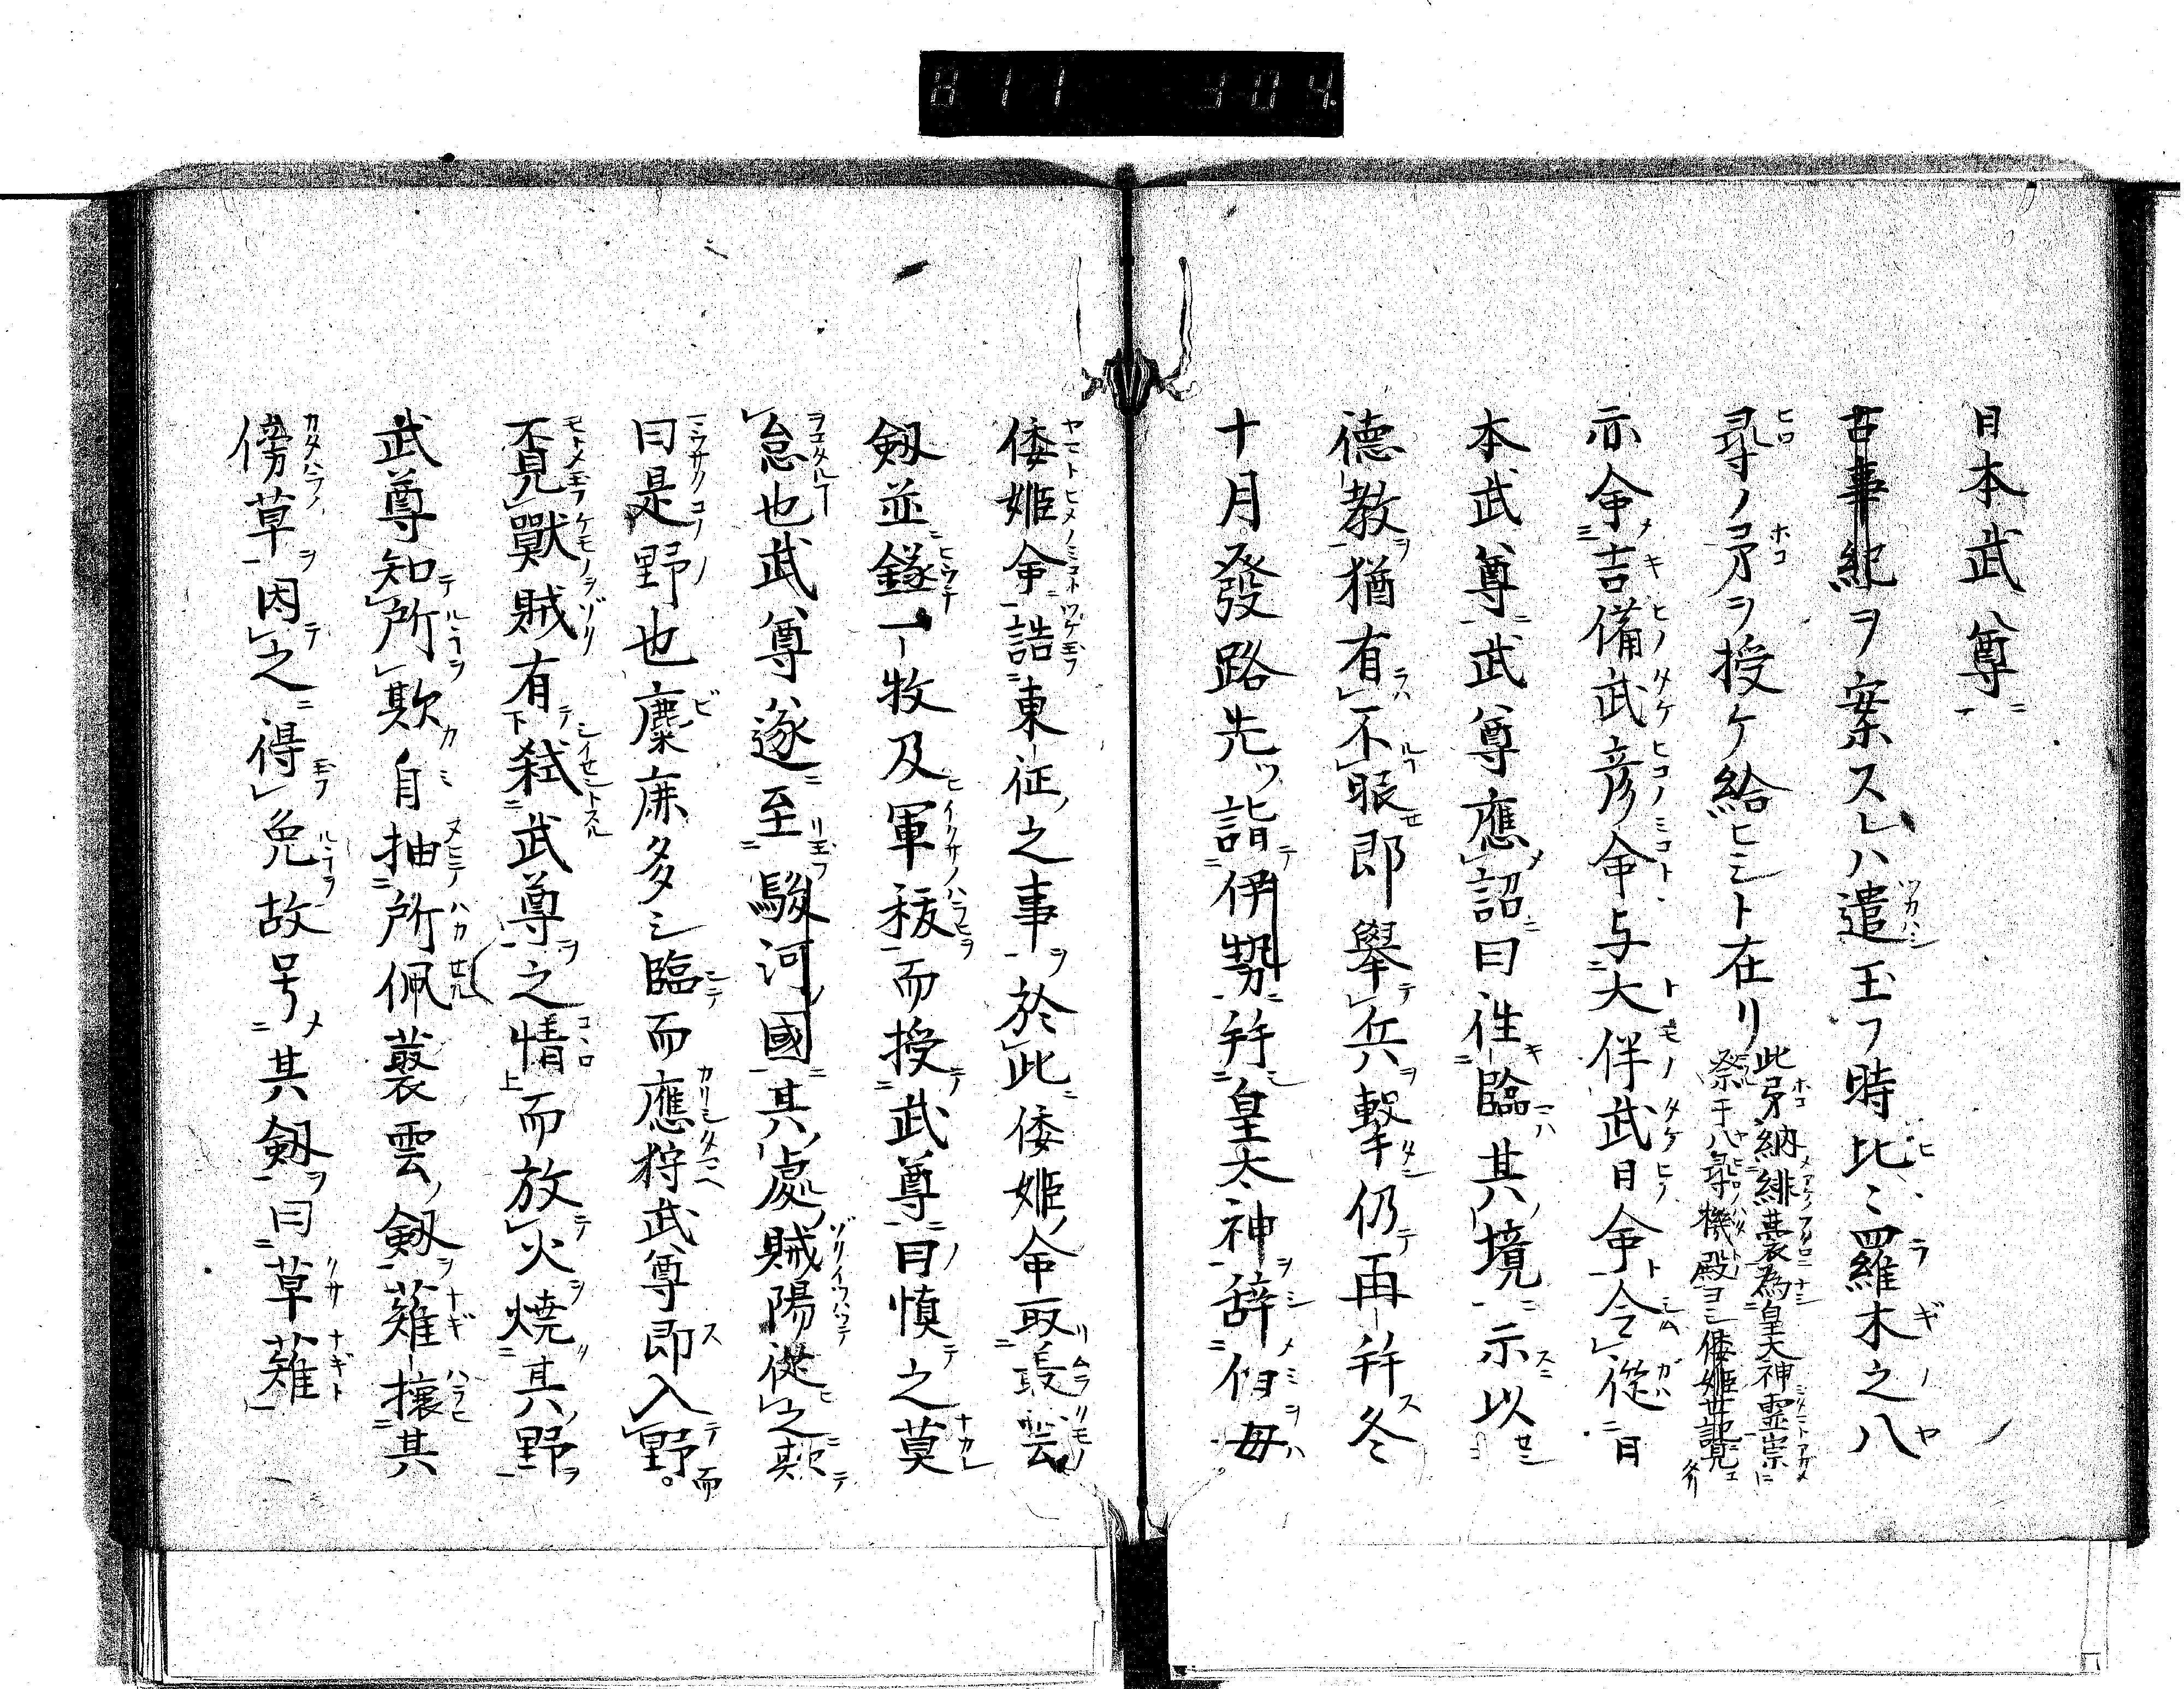 811 304
日本武尊ニ
古事紀ヲ案スレハ遣玉フ時比々羅木之八
尋ノ矛ヲ授ケ給ヒシト在リ
此矛納緋嚢為皇大神霊崇
祭于八尋機殿ヨシ倭姫世記ニ見エ
示命吉備武彦命与大伴武日命令従日
本武尊武尊應詔曰往臨其境示以
德教猶有不服即舉兵擊仍再拜冬
十月發路先ツ詣伊勢拜皇太神辞
倭姫命誥東征之事於此倭姫命取叢雲
劔並鐩一枚及軍秡而授武尊曰慎之莫
怠也武尊遂至駿河國其處賊陽從之欺
曰是野也麋鹿多シ臨而應狩武尊即入野而
覓獸賊有弑武尊之情而放火燒其野
武尊知所欺自抽所佩叢雲劔薙攘其
傍草因之得免故号其劔曰草薙